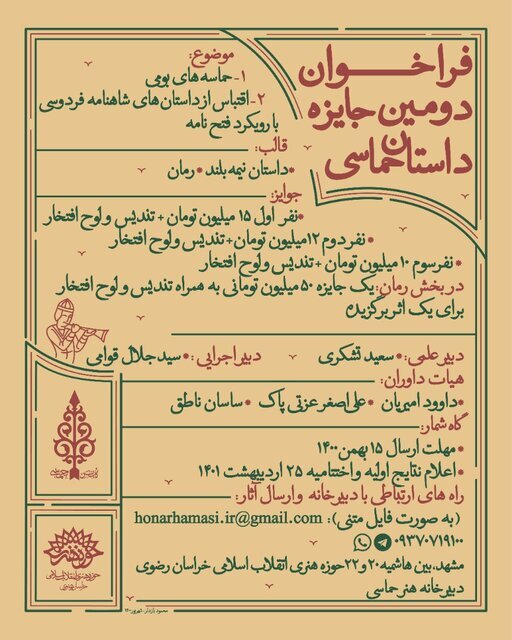 فراخوان
دومین جایزه
داستان حماسی
موضوع:
۱- حماسه های بومی
۲- اقتباس از داستان های شاهنامه فردوسی
با رویکرد فتح نامه
قالب:
* داستان نیمه بلند * رمان
جوایز:
* نفر اول ۱۵ میلیون تومان + تندیس و لوح افتخار
* نفر دوم ۱۲ میلیون تومان + تندیس و لوح افتخار
* نفر سوم ۱۰ میلیون تومان + تندیس و لوح افتخار
در بخش رمان: یک جایزه ۵۰ میلیون تومانی به همراه تندیس و لوح افتخار
برای یک اثر برگزیده
دبیر علمی: * سعید تشکری دبیر اجرایی: * سید جلال قوامی
هیات داوران:
* داوود امیریان * علی اصغر عزتی پاک * ساسان ناطق
گاه شمار:
* مهلت ارسال ۱۵ بهمن ۱۴۰۰
* اعلام نتایج اولیه و اختتامیه ۲۵ اردیبهشت ۱۴۰۱
راه های ارتباطی با دبیرخانه و ارسال آثار:
(به صورت فایل متنی): honarhamasi.ir@gmail.com
۰۹۳۷۰۷۱۹۱۰۰
مشهد، بین هاشمیه ۲۰ و ۲۲ حوزه هنری انقلاب اسلامی خراسان رضوی
دبیرخانه هنر حماسی
حوزه هنری انقلاب اسلامی
خراسان رضوی